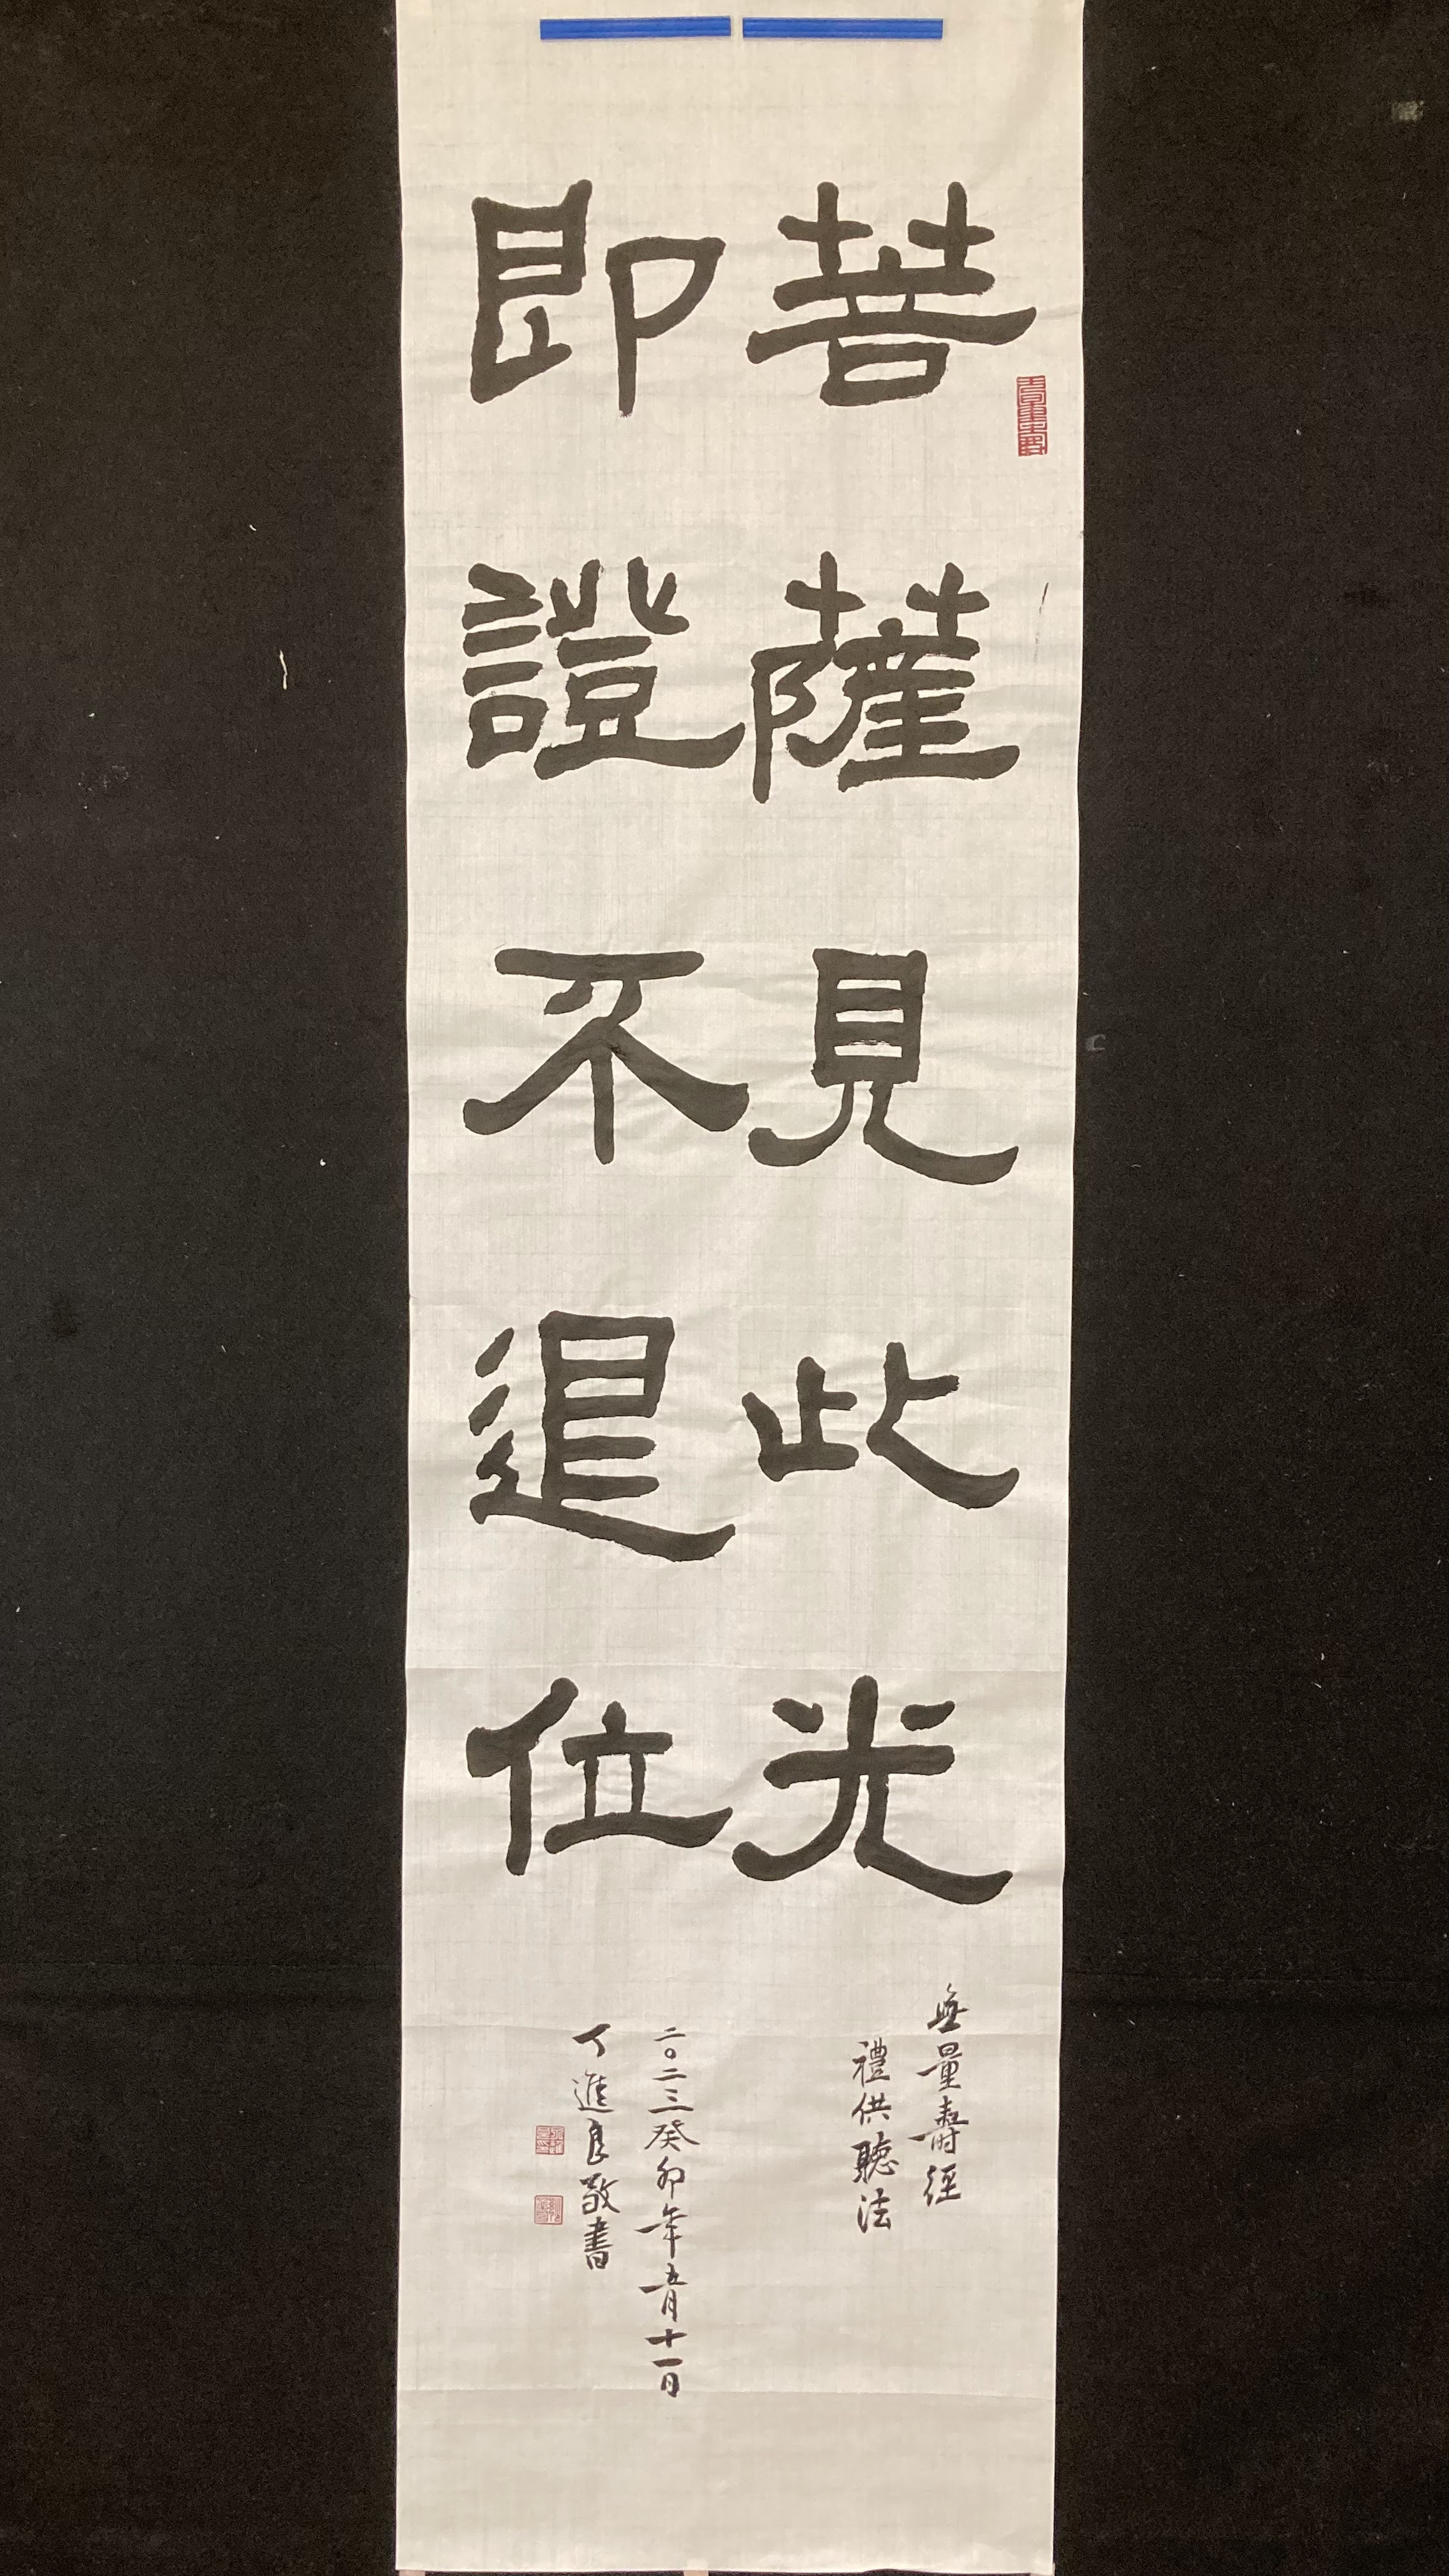 菩薩見此光
即證不退位
無量壽經
禮供聽法
二〇二三癸卯年五月十一日
丁進良敬書